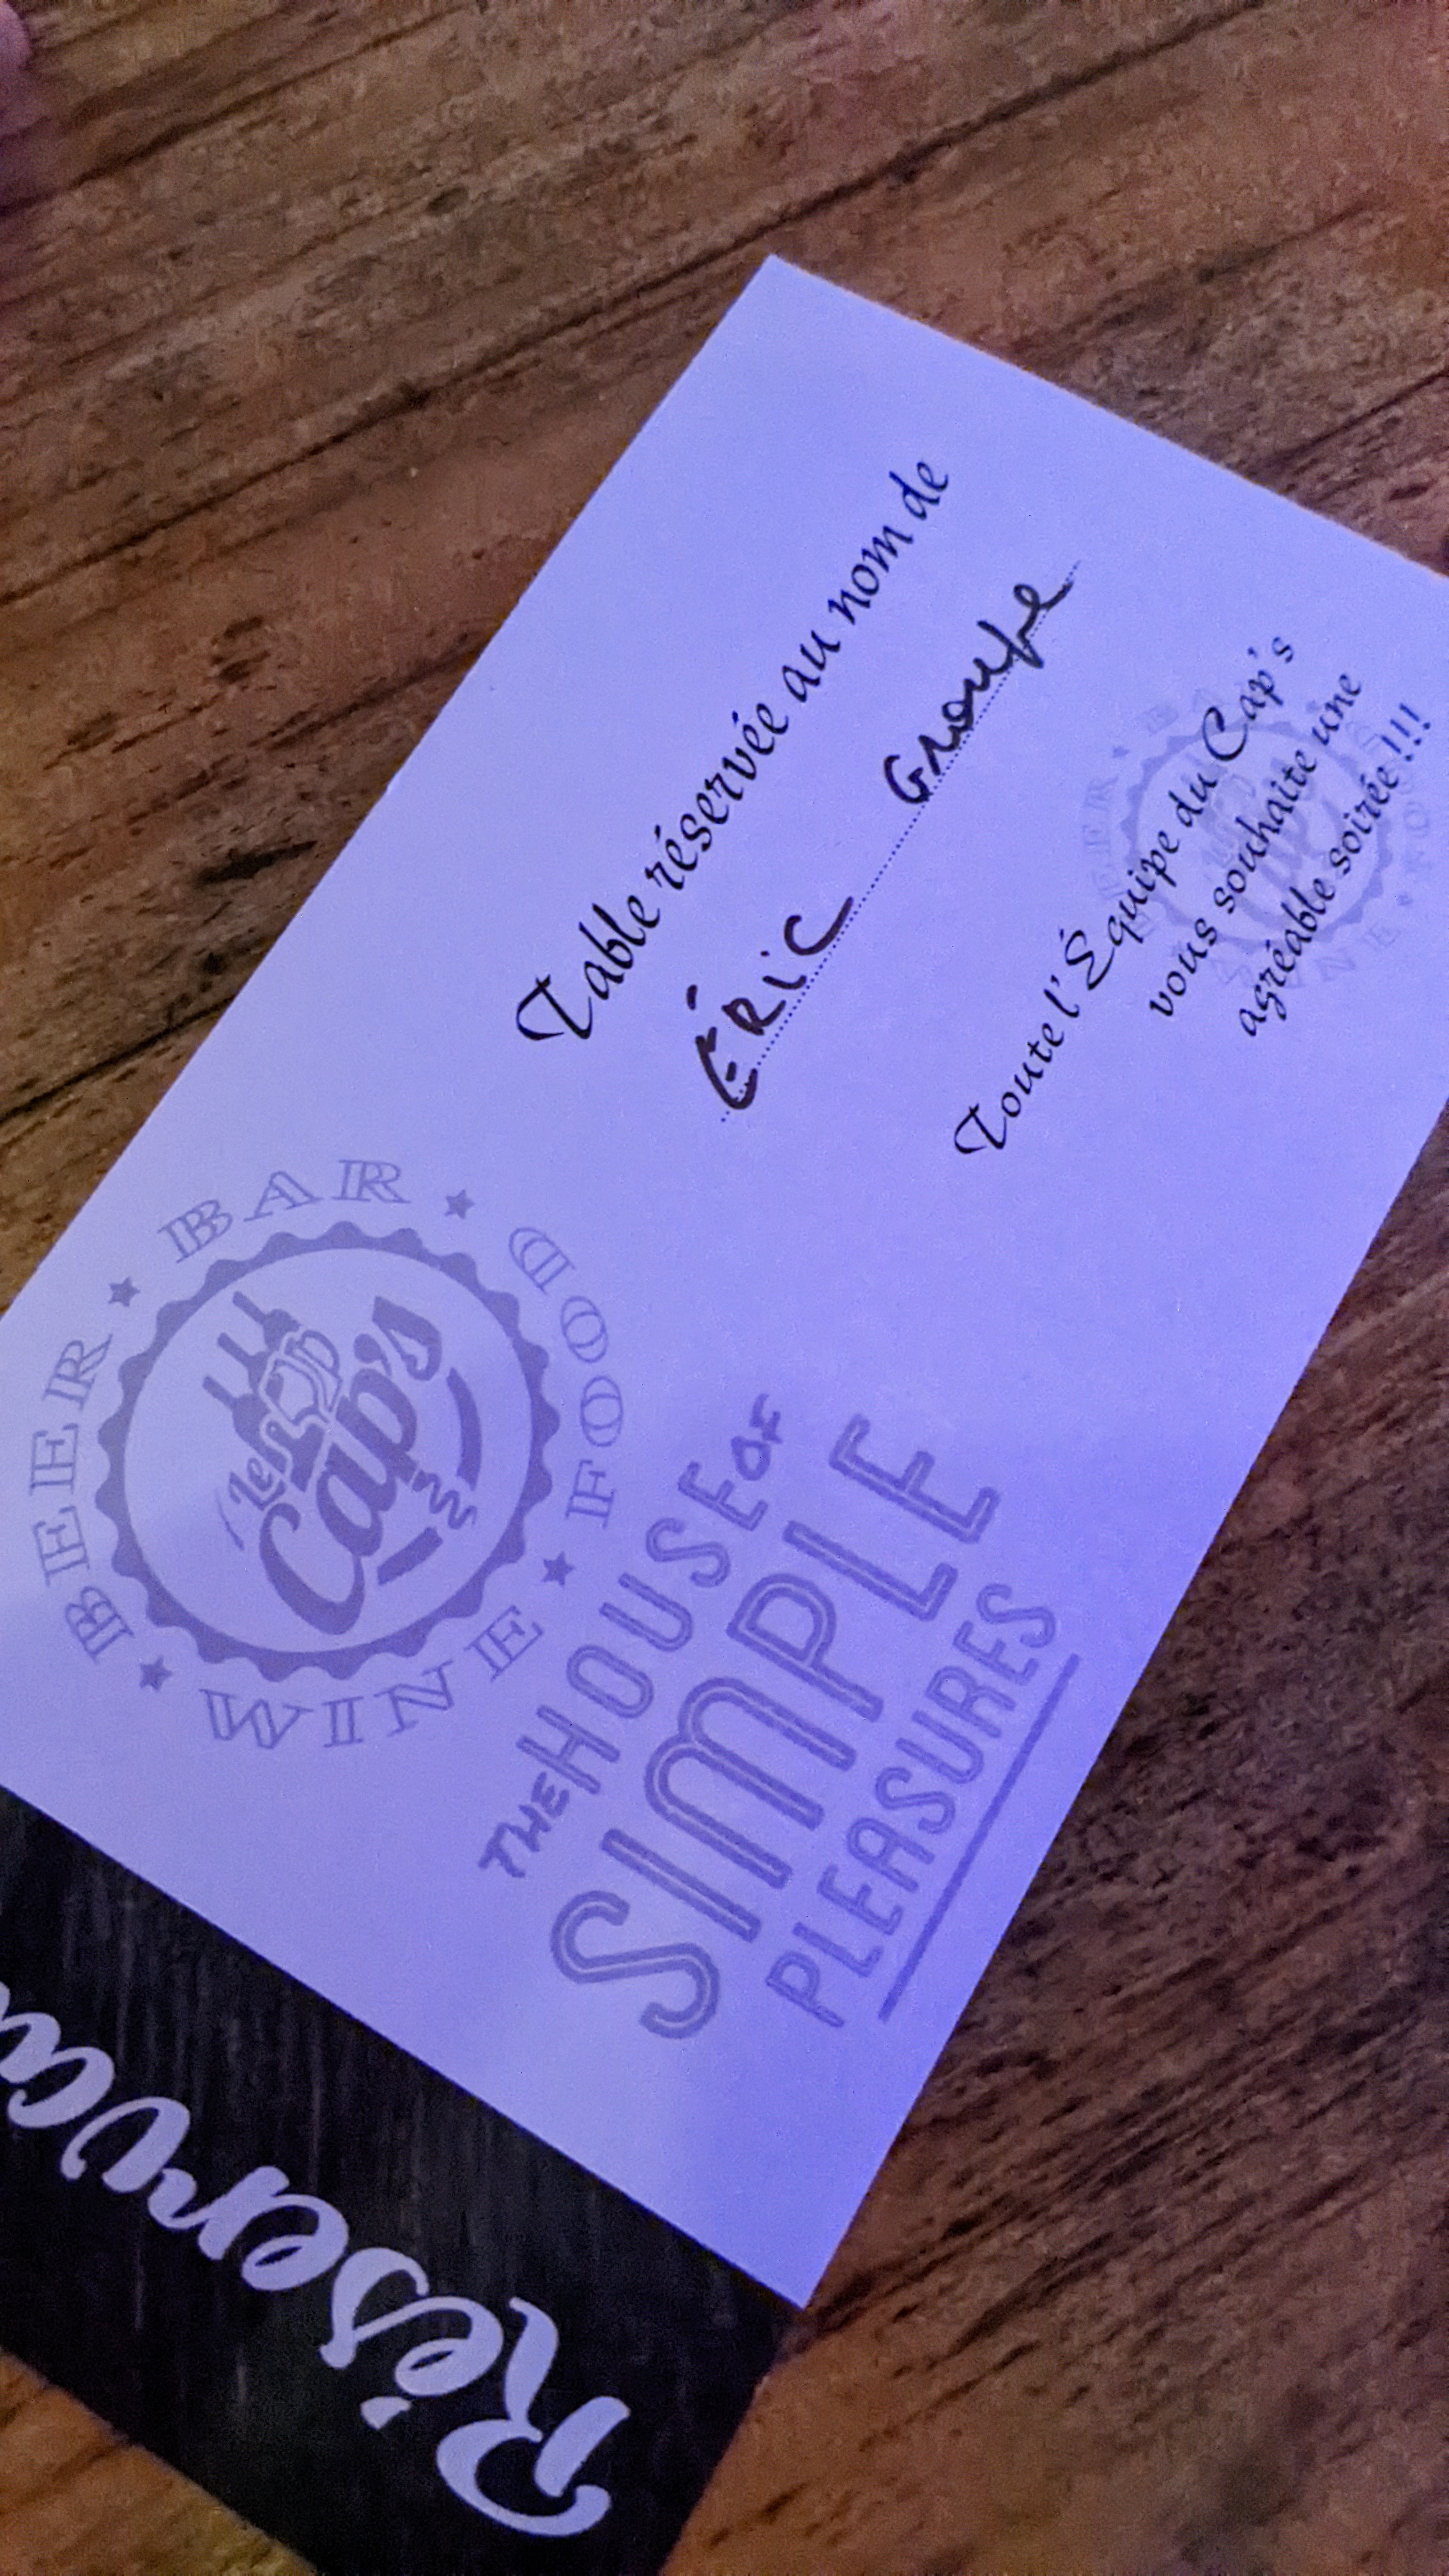 Table réservée au nom de
ÉRIC Groupe
Toute l'Équipe du Cap's
vous souhaite une
agréable soirée !!!
BEER ★ BAR ★ FOOD ★ WINE ★
Le
Cap's
THE HOUSE OF
SIMPLE
PLEASURES
Réserva